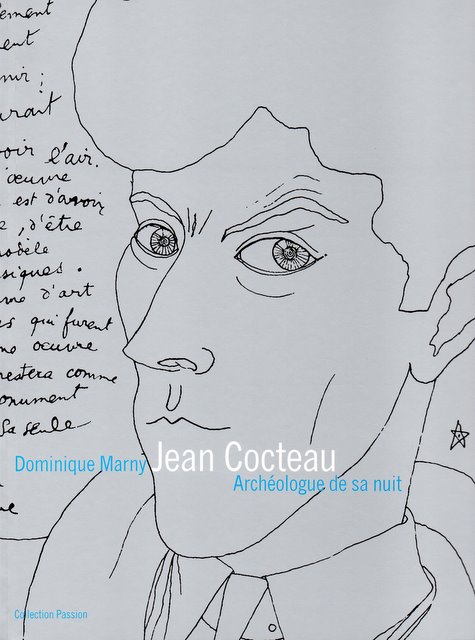 ement
ent
nir ;
urait
oir l'air.
œuvre
est d'avoir
e, d'être
modèle
siques.
me d'art
es qui furent
me œuvre
restera comme
onument
Sa seule
ne
Dominique Marny Jean Cocteau
Archéologue de sa nuit
Collection Passion